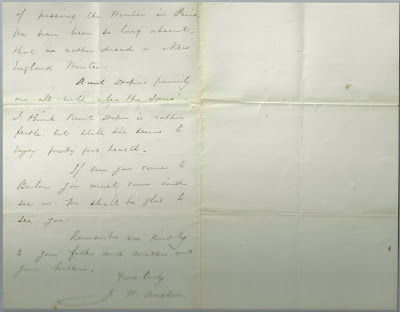 of passing the Winter in Paris,
We have been so long absent,
that we rather dread a New
England Winter.
Aunt family
are all well also the Jones
I think Aunt is rather
feeble, but still she seems to
enjoy pretty good health.
If ever you come to
Boston you must come and
see us. We shall be glad to
see you.
Remember me kindly
to your father and mother and
your brothers.
Yours truly
J. H.